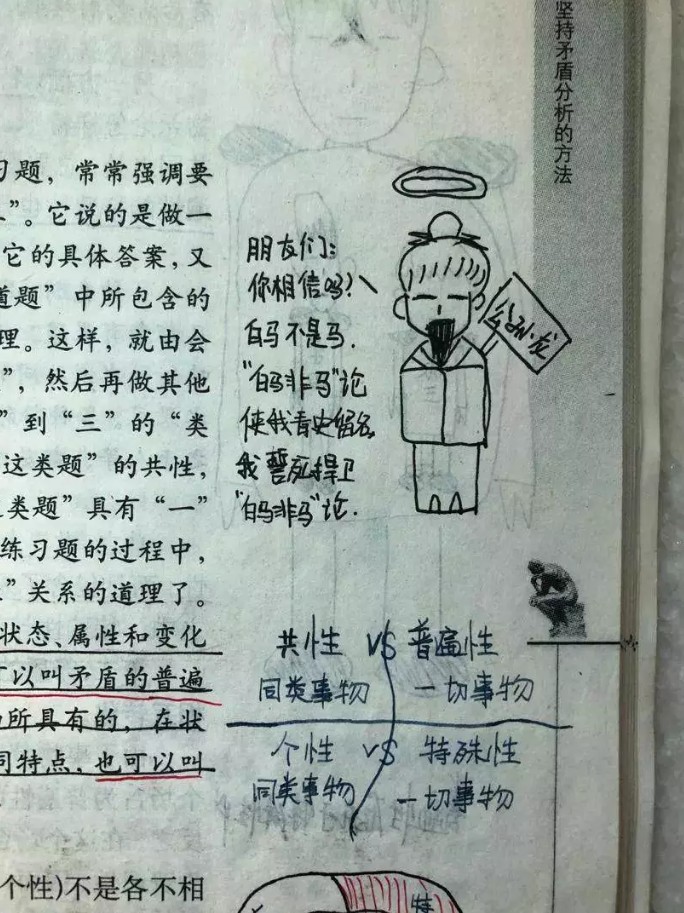 坚持矛盾分析的方法
习题，常常强调要
”。它说的是做一
它的具体答案，又
道题”中所包含的
理。这样，就由会
”，然后再做其他
”到“三”的“类
这类题”的共性，
类题”具有“一”
练习题的过程中，
”关系的道理了。
状态、属性和变化
可以叫矛盾的普遍
所具有的，在状
同特点，也可以叫
个性)不是各不相
朋友们：
你相信吗？
白马不是马．
“白马非马”论
使我青史留名，
我誓死捍卫
“白马非马”论．
公孙龙
共性 VS 普遍性
同类事物 一切事物
个性 VS 特殊性
同类事物 一切事物
特